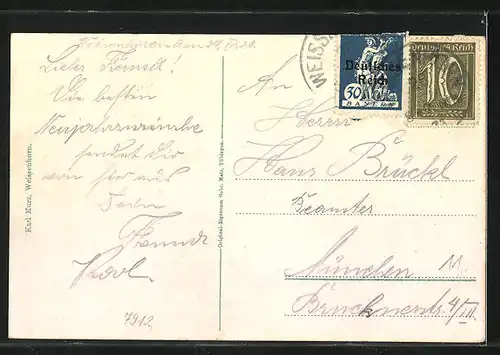 Lieber Freund!
Die besten
Neujahrswünsche
sendet Dir
von hier aus
Dein
Freund
Karl
7912
Karl Kurz, Weissenhorn.
Original-Eigentum Gebr. Metz, Tübingen.
WEISS
Deutsches
Reich
30
BAYERN
Deutsches Reich
10
An
Herrn
Hans Brückl
Beamter
München 11
Brucknerstr. 4/III.